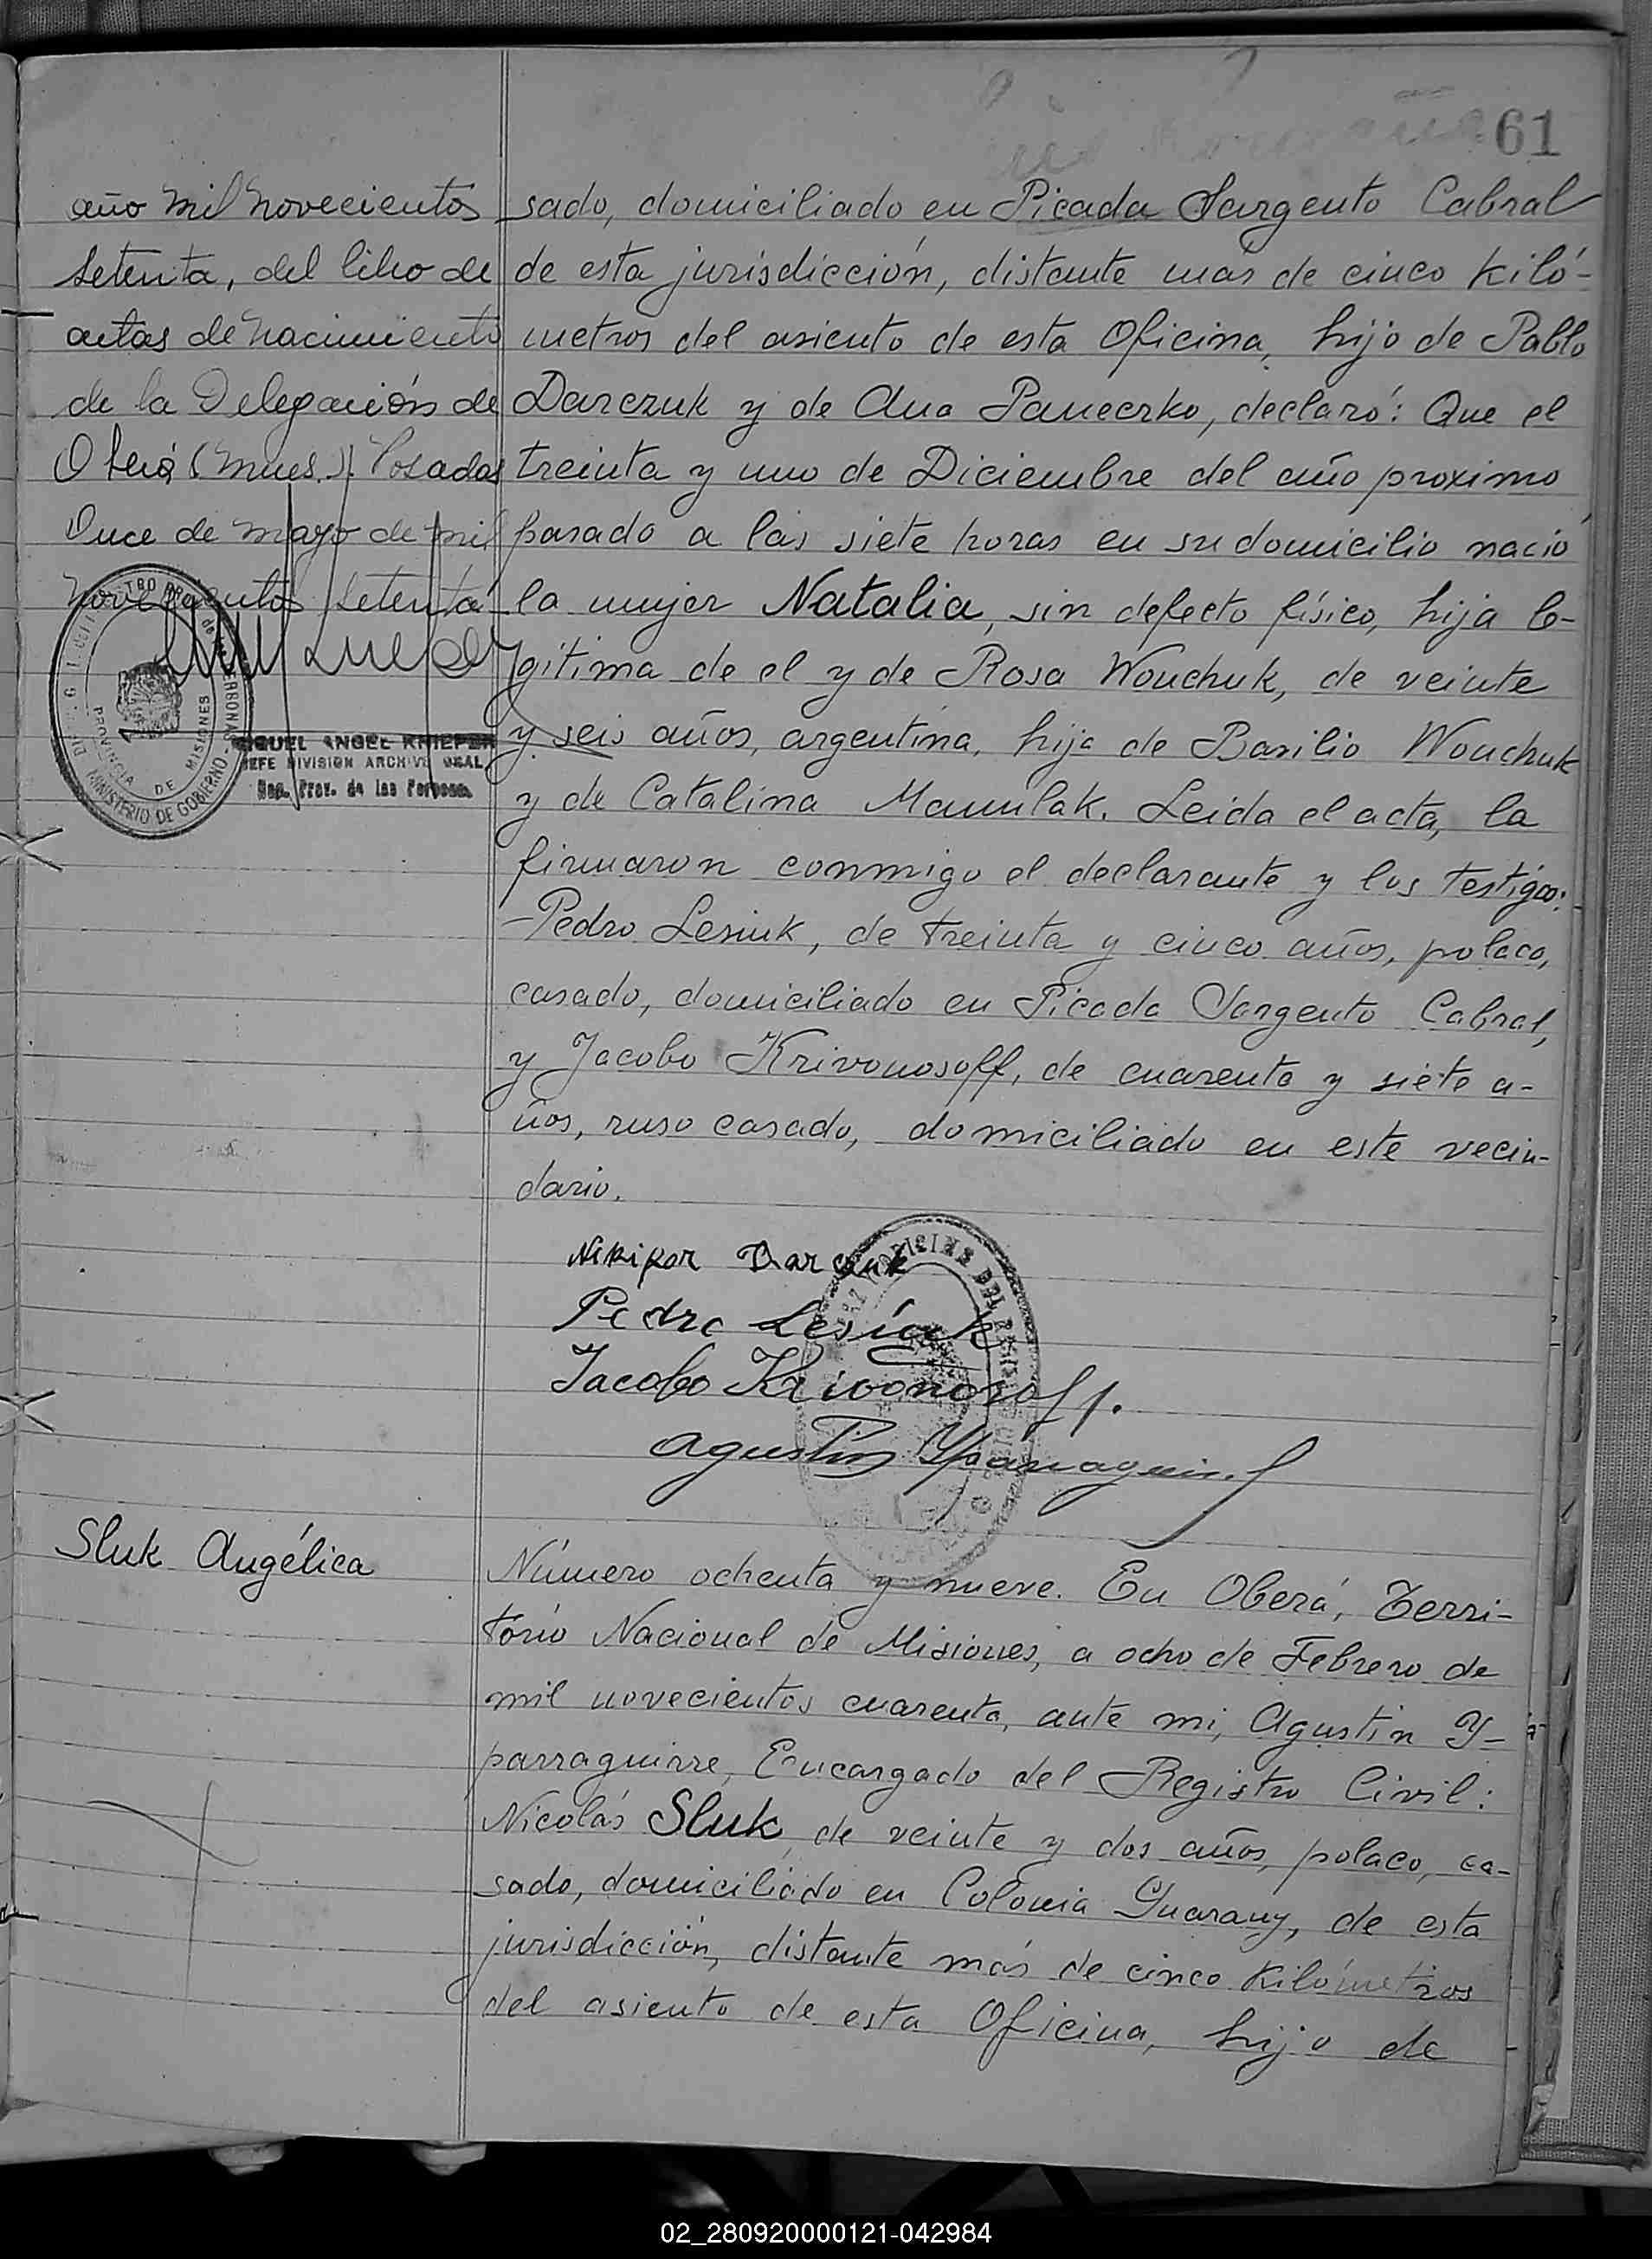 61
año mil novecientos
setenta, del libro de
actas de nacimiento
de la Delegación de
Oberá (Mnes.). Posadas
Once de mayo de mil
novecientos setenta
MIGUEL ANGEL KNIEPER
JEFE DIVISION ARCHIVO GRAL
Reg. Prov. de las Personas
PROVINCIA DE MISIONES
MINISTERIO DE GOBIERNO
sado, domiciliado en Picada Sargento Cabral
de esta jurisdicción, distante más de cinco kiló-
metros del asiento de esta Oficina, hijo de Pablo
Darczuk y de Ana Paneczko, declaró: Que el
treinta y uno de Diciembre del año proximo
pasado a las siete horas en su domicilio nació
la mujer Natalia, sin defecto físico, hija le-
gitima de el y de Rosa Wouchuk, de veinte
y seis años, argentina, hija de Basilio Wouchuk
y de Catalina Mamulak. Leida el acta, la
firmaron conmigo el declarante y los testigos:
-Pedro Lesiuk, de treinta y cinco años, polaco,
casado, domiciliado en Picada Sargento Cabral,
y Jacobo Krivonosoff, de cuarenta y siete a-
ños, ruso casado, domiciliado en este vecin-
dario.
Nikifor Darczuk
Pedro Lesiuk
Jacobo Krivonosoff.
Agustin Yparraguirre
Sluk Angélica
Número ochenta y nueve. En Oberá, Terri-
torio Nacional de Misiones, a ocho de Febrero de
mil novecientos cuarenta, ante mi, Agustin Y-
parraguirre, Encargado del Registro Civil:
Nicolás Sluk, de veinte y dos años, polaco, ca-
sado, domiciliado en Colonia Guarany, de esta
jurisdicción, distante más de cinco kilómetros
del asiento de esta Oficina, hijo de
02_280920000121-042984